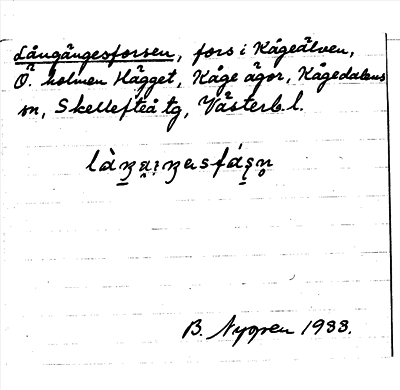 Långångesforsen, fors i Kågeälven,
Ö. holmen Hägget, Kåge ägor, Kågedalens
sn, Skellefteå tg, Västerb. l.
B. Nygren 1933.